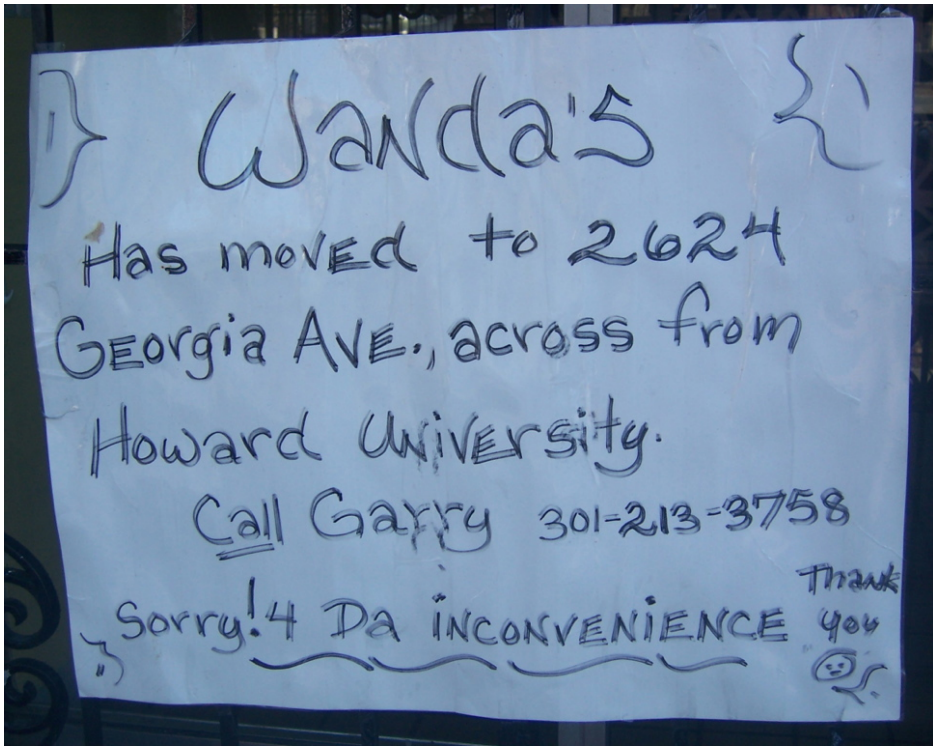 Wanda's
Has moved to 2624
Georgia Ave., across from
Howard University.
Call Garry 301-213-3758
Sorry! 4 Da inconvenience
Thank
you